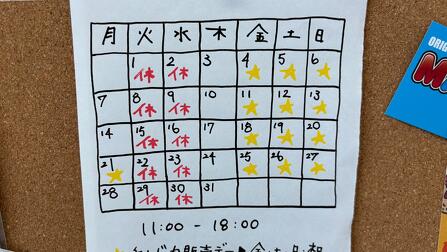 月 火 水 木 金 土 日
1休 2休 3 4★ 5★ 6★
7 8休 9休 10 11★ 12★ 13★
14 15休 16休 17 18★ 19★ 20★
21★ 22休 23休 24 25★ 26★ 27★
28 29休 30休 31
11:00 - 18:00
ORIG